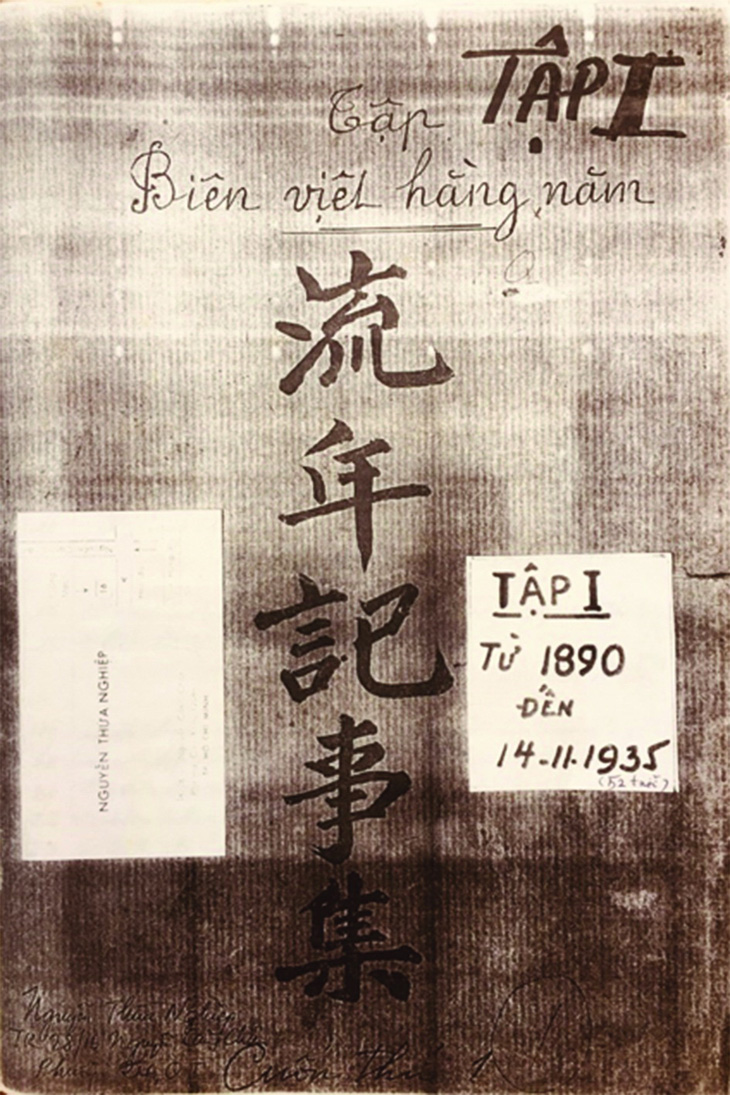 TẬP I
Tập
Biên viết hằng năm
流年記事集
NGUYỄN THỪA NGHIỆP
TẬP I
TỪ 1890
ĐẾN
14-11-1935
(52 tuổi)
Nguyễn Thừa Nghiệp
Cuốn thứ 1